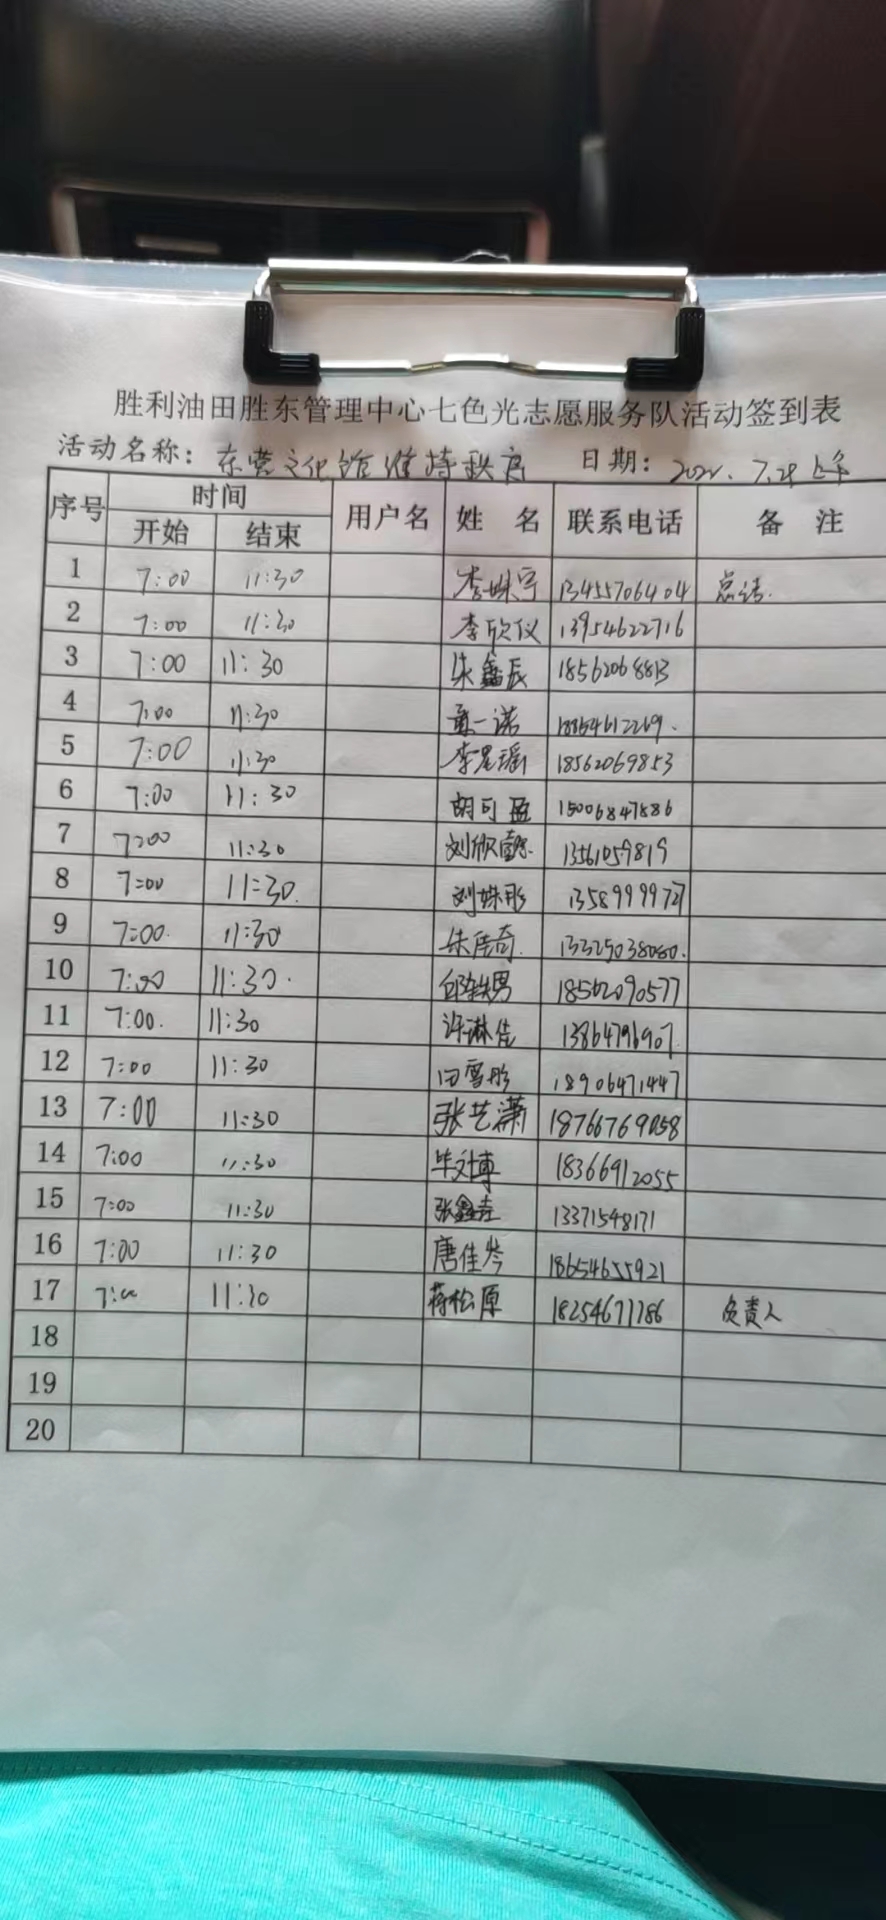 胜利油田胜东管理中心七色光志愿服务队活动签到表
活动名称：东营文化馆维持秩序 日期：2022.7.29上午
序号 时间 用户名 姓名 联系电话 备注
开始 结束
1 7:00 11:30 李姝宇 13455706404 总结.
2 7:00 11:30 李欣仪 13954622716
3 7:00 11:30 朱鑫辰 18562068813
4 7:00 11:30 董一诺 18864612269.
5 7:00 11:30 李星瑶 18562069853
6 7:00 11:30 胡可盈 15006847886
7 7:00 11:30 刘欣懿 13561059819
8 7:00 11:30. 刘姝彤 13589999727
9 7:00. 11:30 朱彦奇. 13325038080.
10 7:00 11:30. 邱轶男 18562090577
11 7:00. 11:30 许琳佳 13864796907.
12 7:00 11:30 田雪彤 18906471447
13 7:00 11:30 张艺潇 18766769058
14 7:00 11:30 毕文博 18366912055
15 7:00 11:30 张鑫垚 13371548171
16 7:00 11:30 唐佳岑 18654655921
17 7:00 11:30 蒋松原 18254671786 负责人
18
19
20